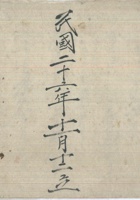 民國二十六年十一月十二立